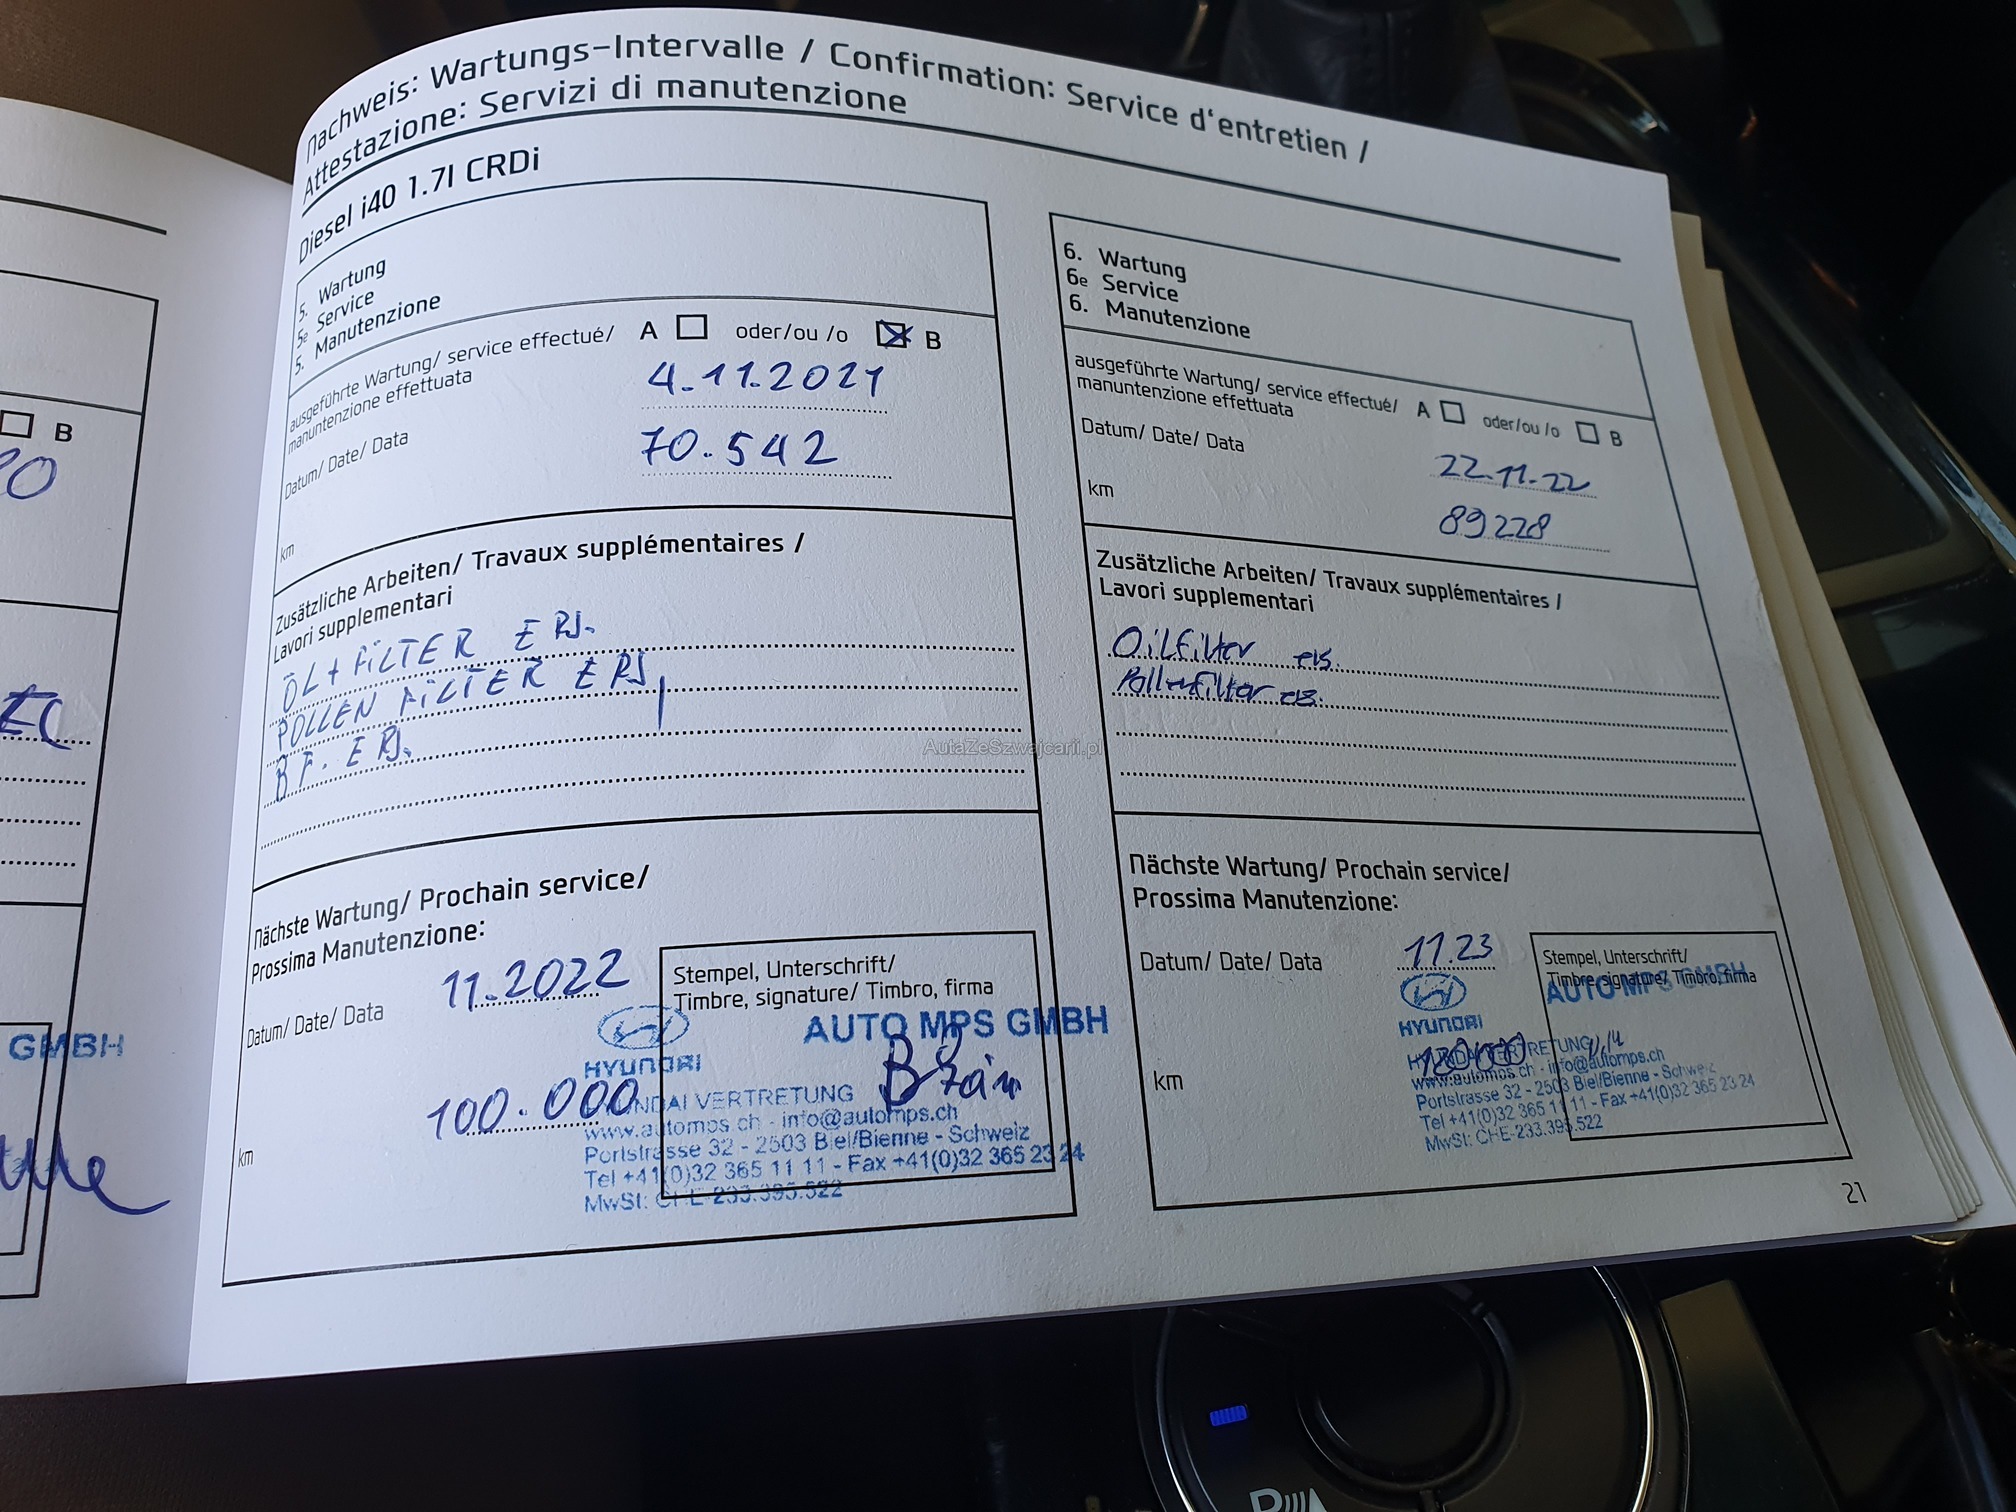 Nachweis: Wartungs-Intervalle / Confirmation: Service d'entretien /
Attestazione: Servizi di manutenzione
Diesel i40 1.7l CRDi
5. Wartung
5e Service
5. Manutenzione
ausgeführte Wartung/ service effectué/ A oder/ou /o B
manuntenzione effettuata
Datum/ Date/ Data 4.11.2021
km 70.542
Zusätzliche Arbeiten/ Travaux supplémentaires /
Lavori supplementari
ÖL + FILTER ERS.
POLLEN FILTER ERS
B F. ERS.
Nächste Wartung/ Prochain service/
Prossima Manutenzione:
Datum/ Date/ Data 11.2022
km 100.000
Stempel, Unterschrift/
Timbre, signature/ Timbro, firma
AUTO MPS GMBH
HYUNDAI
HYUNDAI VERTRETUNG
www.automps.ch - info@automps.ch
Portstrasse 32 - 2503 Biel/Bienne - Schweiz
Tel +41(0)32 365 11 11 - Fax +41(0)32 365 23 24
MwSt: CHE-233.395.522
6. Wartung
6e Service
6. Manutenzione
ausgeführte Wartung/ service effectué/ A oder/ou /o B
manuntenzione effettuata
Datum/ Date/ Data 22.11.22
km 89228
Zusätzliche Arbeiten/ Travaux supplémentaires /
Lavori supplementari
Oilfilter ers.
Pollenfilter ers.
Nächste Wartung/ Prochain service/
Prossima Manutenzione:
Datum/ Date/ Data 11.23
km
Stempel, Unterschrift/
Timbre, signature/ Timbro, firma
AUTO MPS GMBH
HYUNDAI
HYUNDAI VERTRETUNG
www.automps.ch - info@automps.ch
Portstrasse 32 - 2503 Biel/Bienne - Schweiz
Tel +41(0)32 365 11 11 - Fax +41(0)32 365 23 24
MwSt: CHE-233.395.522
21
B
GMBH
AutaZeSzwajcarii.pl